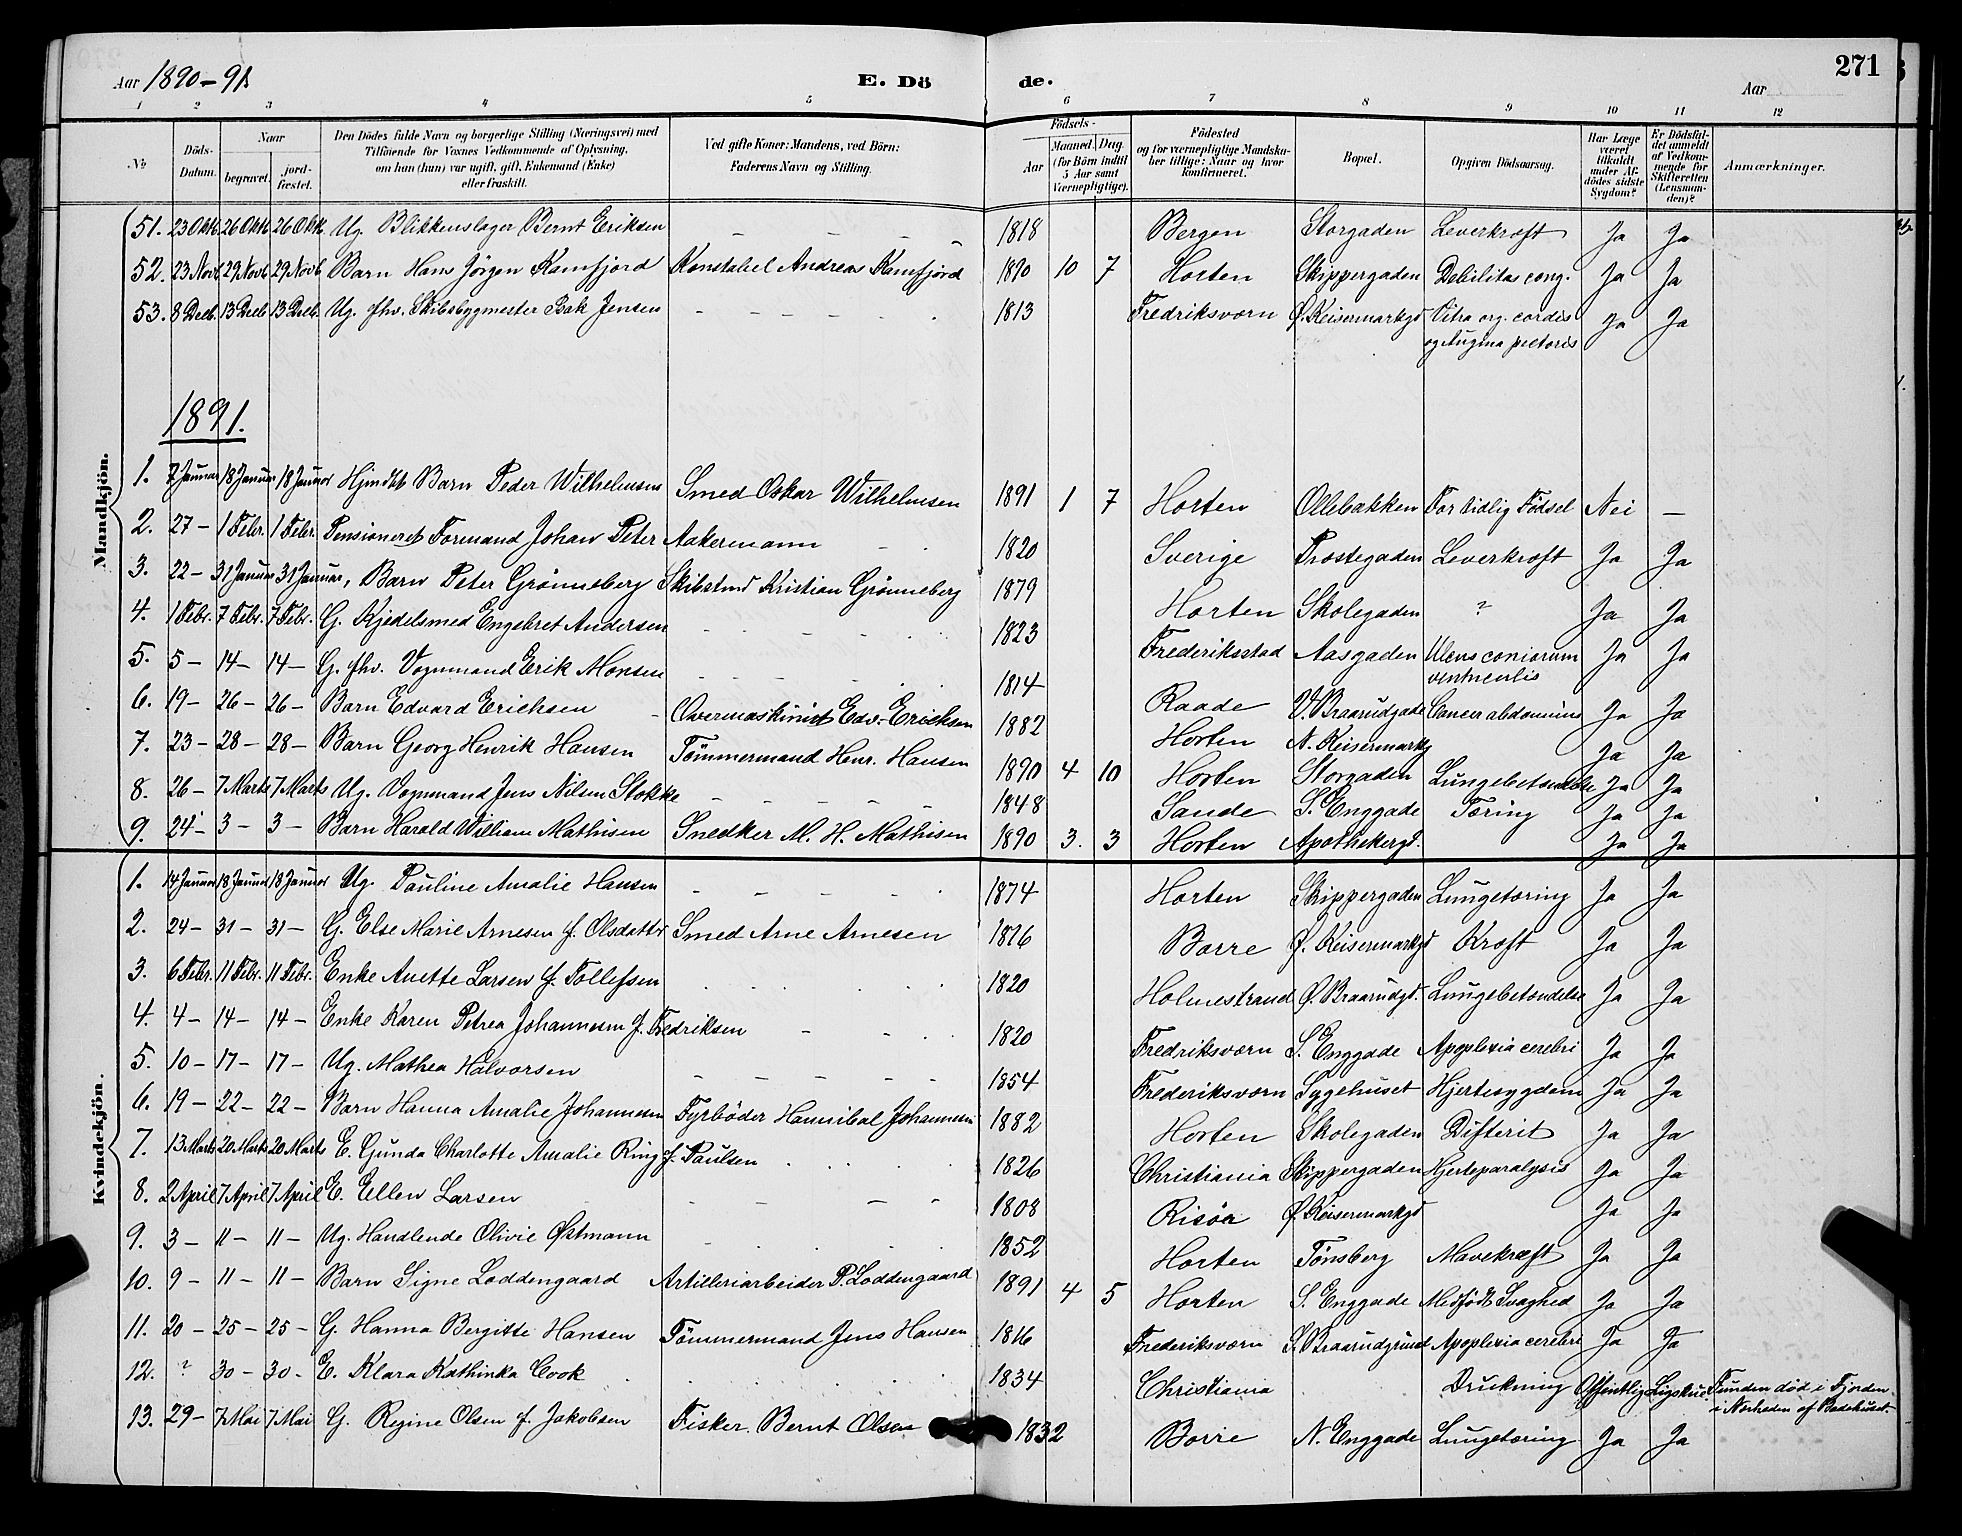 271
Aar 1890-91.
E. Dö de.
Aar
1 2 3 4 5 6 7 8 9 10 11 12
No
Döds-Datum.
Naar
begravet.
jord-fæstet.
Den Dödes fulde Navn og borgerlige Stilling (Næringsvei) med Tilföiende for Voxnes Vedkommende af Oplysning, om han (hun) var ugift, gift, Enkemand (Enke) eller fraskilt.
Ved gifte Koner: Mandens, ved Börn: Faderens Navn og Stilling.
Födsels-
Aar
Maaned. Dag. (for Börn indtil 5 Aar samt Værnepligtige).
Födested og for værnepligtige Mandskaber tillige: Naar og hvor konfirmeret.
Bopæl.
Opgiven Dödsaarsag.
Har Læge været tilkaldt under Afdödes sidste Sygdom?
Er Dödsfaldet anmeldt af Vedkommende for Skifteretten (Lensmanden)?
Anmærkninger.
Mandkjön.
51. 23 Oktb. 26 Oktb. 26 Oktb. Ug. Blikkenslager Bernt Eriksen - - - - - 1818 Bergen Storgaden Leverkræft Ja Ja
52. 23 Novb. 29 Novb. 29 Novb. Barn Hans Jörgen Kamfjord Konstabel Andreas Kamfjord 1890 10 7 Horten Skippergaden Debilitas cong. Ja Ja
53. 8 Decb. 13 Decb. 13 Decb. Ug. fhv. Skibsbygmester Bak Jensen - - - - - 1813 Fredriksværn Ø. Keisermarkgd. Vitia org. cordis og Angina pectoris Ja Ja
1891.
1. 7 Januar 18 Januar 18 Januar Hjmdbt Barn Peder Wilhelmsen Smed Oskar Wilhelmsen 1891 1 7 Horten Ollebakken For tidlig Födsel Nei -
2. 27 - 1 Febr. 1 Febr. Pensioneret Formand Johan Peter Aakermann 1820 Sverige Prostegaden Leverkræft Ja Ja
3. 22 - 31 Januar 31 Januar, Barn Peter Grönneberg Skibstmd Kristian Grönneberg 1879 Horten Skolegaden ? Ja Ja
4. 1 Febr. 7 Febr. 7 Febr. G. Kjedelsmed Engebret Andersen 1823 Frederiksstad Aasgaden Ulcus ventriculis Ja Ja
5. 5 - 14 - 14 - G. fhv. Vognmand Erik Monsen 1814 Raade V. Braarudgade Cancer abdominis Ja Ja
6. 19 - 26 - 26 - Barn Edvard Erichsen - Overmaskinist Edv. Erichsen 1882 Horten N. Keisermarkg Ja Ja
7. 23 - 28 - 28 - Barn Georg Henrik Hansen Tömmermand Henr. Hansen 1890 4 10 Horten Storgaden Lungebetændelse Ja Ja
8. 26 - 7 Marts 7 Marts Ug. Vognmand Jens Nilsen Stokke - - - - - 1848 Sande S. Enggade Tæring Ja Ja
9. 24 - 3 - 3 - Barn Harald William Mathisen Snedker M. H. Mathisen 1890 3. 3 Horten Apothekergd. Ja Ja
Kvindekjön.
1. 14 Januar 18 Januar 18 Januar Ug. Pauline Amalie Hansen - - - - 1874 Horten Skippergaden Lungetæring Ja Ja
2. 24 - 31 - 31 - G. Else Marie Arnesen f. Olsdatter Smed Arne Arnesen 1816 Borre Ø. Keisermarkgd Kræft Ja Ja
3. 6 Febr. 11 Febr. 11 Febr. Enke Anette Larsen f. Tollefsen 1820 Holmestrand Ø. Braarudgd. Lungebetændelse Ja Ja
4. 4 - 14 - 14 - Enke Karen Petrea Johannesen f. Fredriksen - - 1820 Fredriksværn S. Enggade Apoplexia cerebri Ja Ja
5. 10 - 17 - 17 - Ug. Mathea Halvorsen - - - - - 1854 Frederiksværn Sygehuset Hjertesygdom Ja Ja
6. 19 - 22 - 22 - Barn Hanna Amalie Johannesen Fyrböder Hannibal Johannesen 1882 Horten Skolegaden Difterit Ja Ja
7. 13 Marts 20 Marts 20 Marts E. Gunda Charlotte Amalie Ring f. Paulsen 1826 Christiania Skippergaden Hjerteparalysis Ja Ja
8. 2 April 7 April 7 April E. Ellen Larsen - - - - 1808 Risöa Ø. Keisermarkgd Ja Ja
9. 3 - 11 - 11 - Ug. Handlende Olivie Østmann 1852 Horten Tönsberg Mavekræft Ja Ja
10. 9 - 11 - 11 - Barn Signe Loddengaard Artilleriarbeider P. Loddengaard 1891 4 5 Horten S. Enggade Medfödt Svaghed Ja Ja
11. 20 - 25 - 25 - G. Hanna Bergitte Hansen Tömmermand Jens Hansen 1816 Frederiksværn S. Braarudgrund Apoplexia cerebri Ja Ja
12. ? 30 - 30 - E. Klara Kathinka Cook 1834 Christiania Drukning Offentlig Ligskue Funden död i Fjorden i Nærheden af Badehuset.
13. 29 - 7 Mai 7 Mai G. Regine Olsen f. Jakobsen Fisker Bernt Olsen 1832 Borre N. Enggade Lungetæring Ja Ja